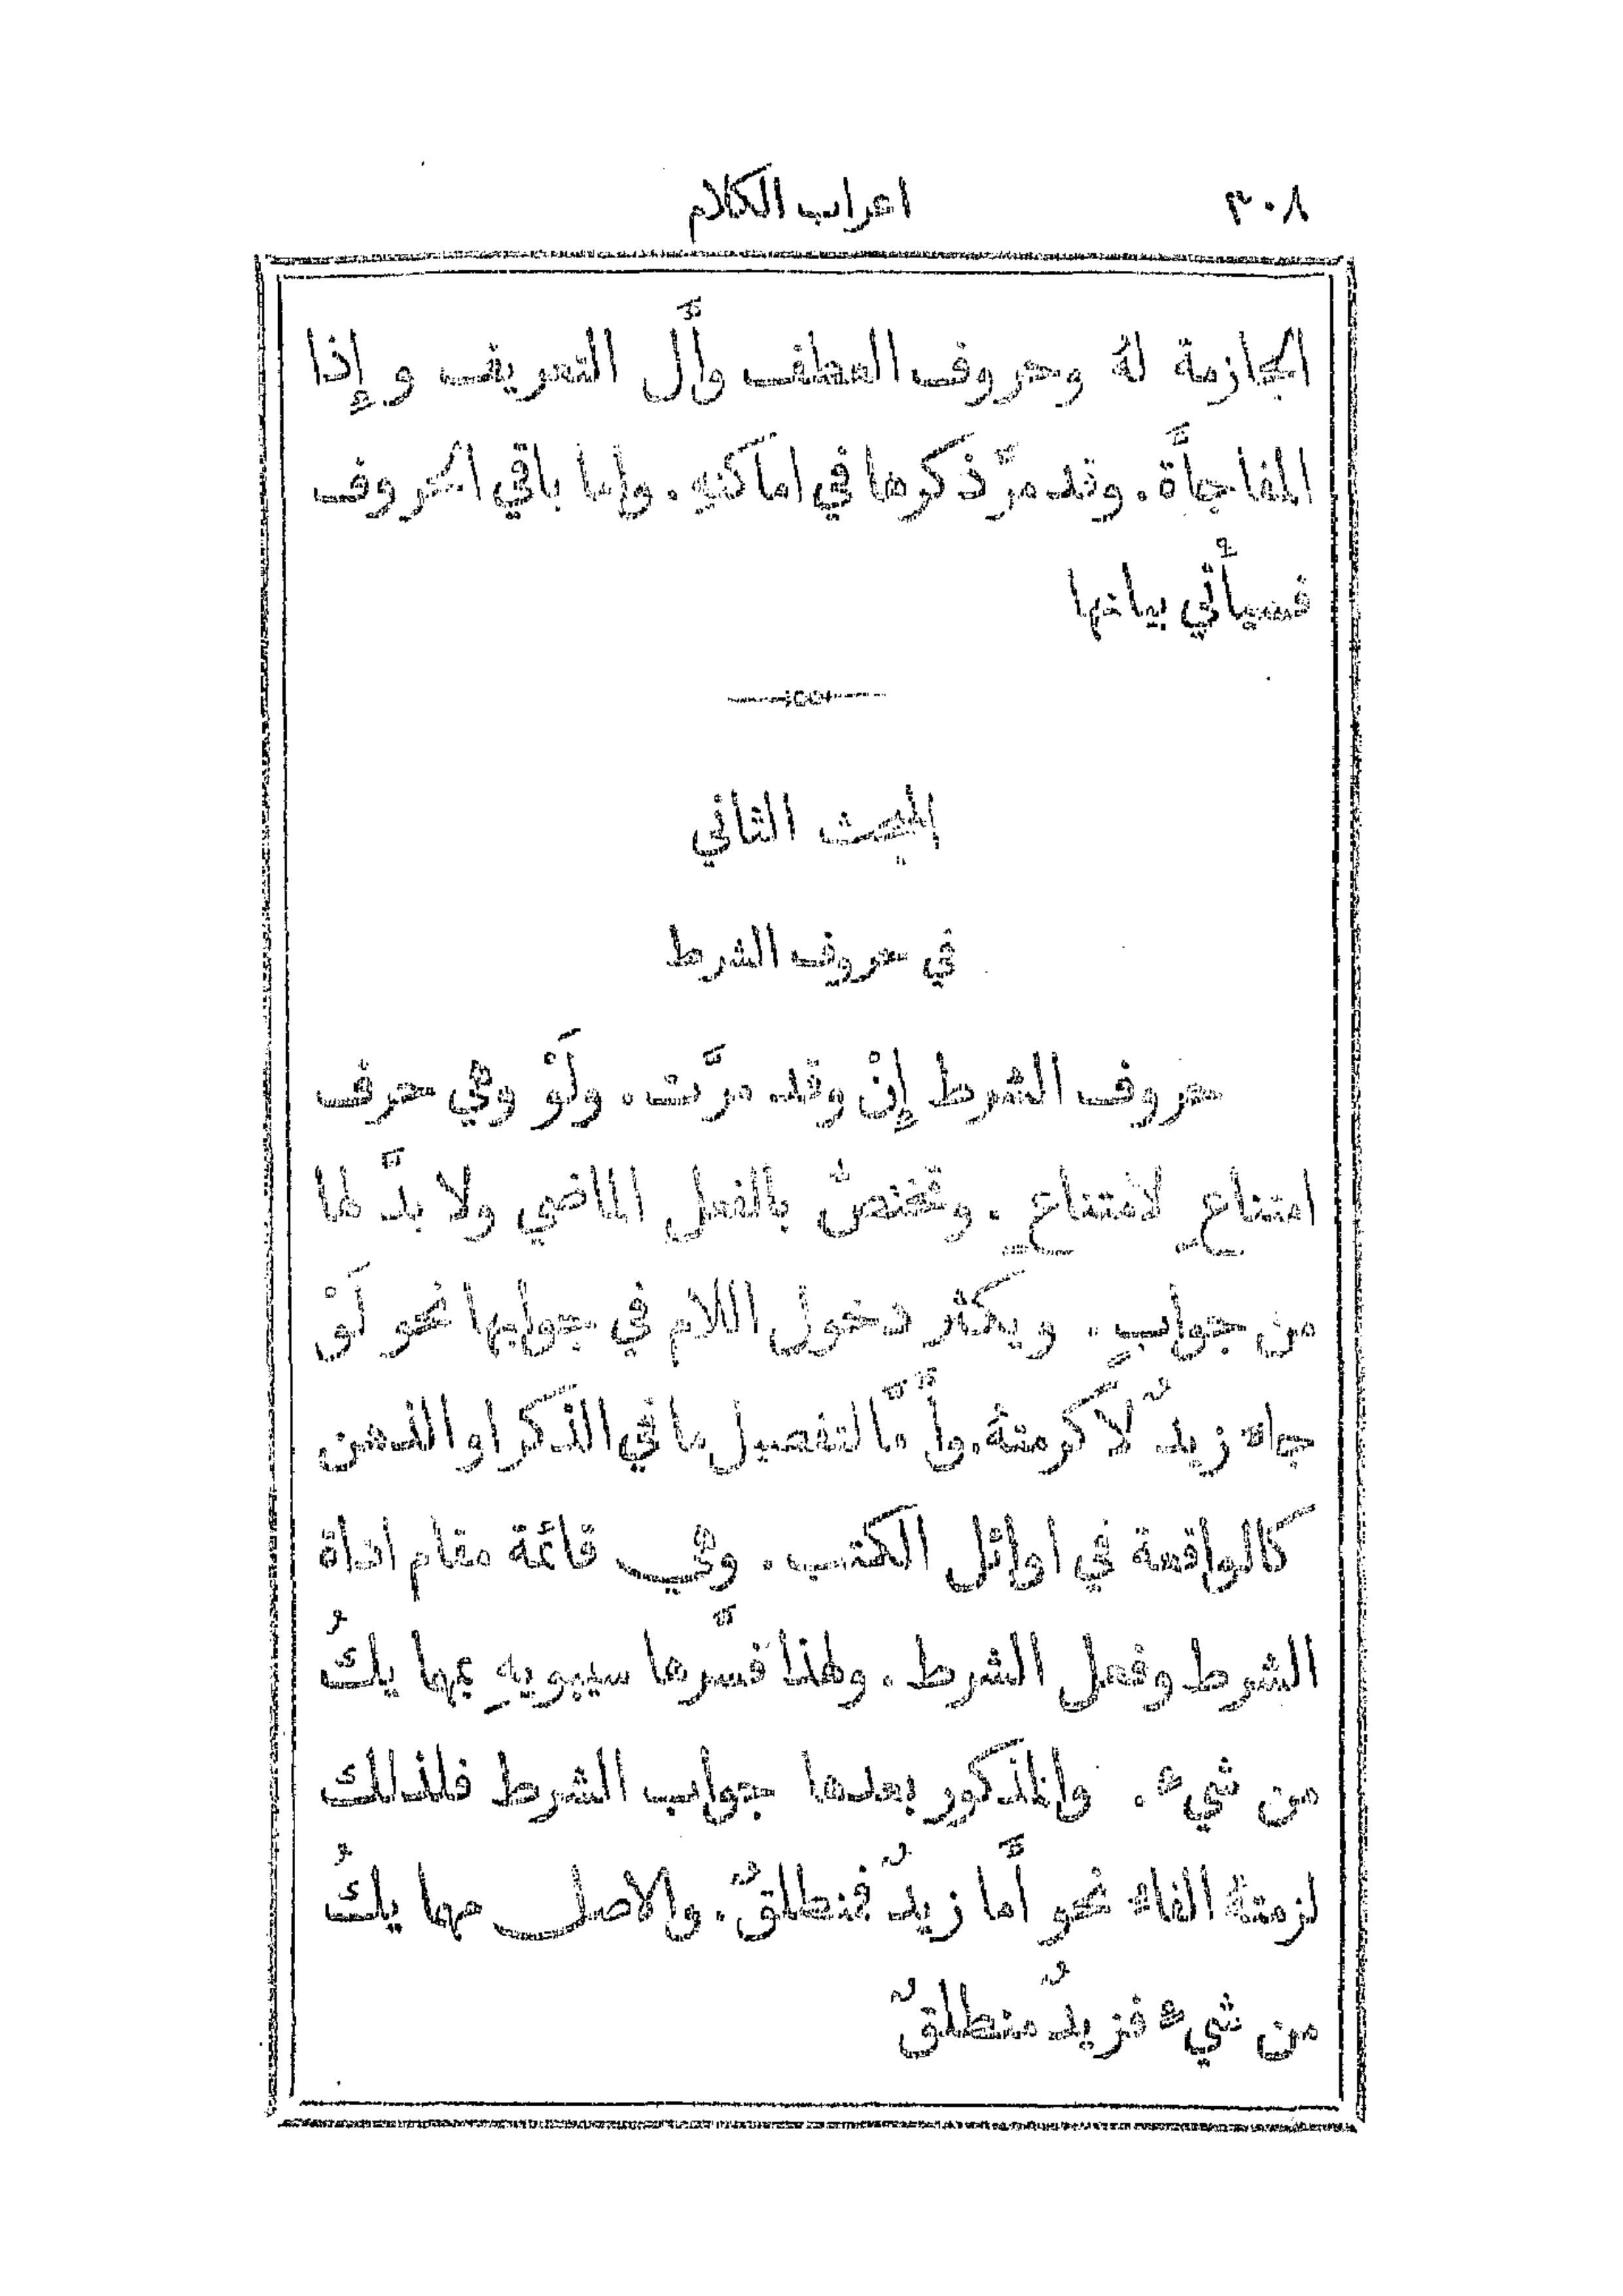 ٣٠٨ اعراب الكلام
الجازمة لهُ وحروف العطف وأَل التعريف و إِذا
المفاجأَة. وقد مرَّ ذكرها في اماكنهِ. واما باقي الحروف
فسيأْتي بيانها
المبحث الثاني
في حروف الشرط
حروف الشرط إِنْ وقد مرَّت. ولَوْ وهي حرف
امتناعٍ لامتناعٍ. وتختصُّ بالفعل الماضي ولا بدَّ لها
من جوابٍ. ويكثر دخول اللام في جوابها نحو لَوْ
جاءَ زيدٌ لَأَكرمتهُ. وأَمَّا لتفصيل ما في الذكر او الذهن
كالواقعة في اوائل الكتب. وهي قائمة مقام اداة
الشرط وفعل الشرط. ولهذا فسَّرها سيبويهِ بمهما يكُ
من شيءٍ. والمذكور بعدها جواب الشرط فلذلك
لزمتهُ الفاء نحو أَما زيدٌ فمنطلقٌ. والاصل مهما يكُ
من شيءٍ فزيدٌ منطلقٌ